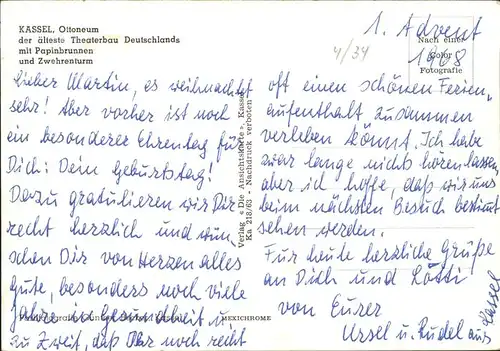 KASSEL, Ottoneum
der älteste Theaterbau Deutschlands
mit Papinbrunnen
und Zwehrenturm
Lieber Martin, es weihnachtet
sehr! Aber vorher ist noch
ein besonderer Ehrentag für
Dich: Dein Geburtstag!
Dazu gratulieren wir Dir
recht herzlich und wün-
schen Dir von Herzen alles
Gute, besonders noch viele
Jahre in Gesundheit u.
zu Zweit, daß Ihr noch recht
MEXICHROME
Verlag «Die Ansichtskarte», Kassel
Ka 218/63 • Nachdruck verboten
4/34
1. Advent
1968
Nach einer
Color
Fotografie
oft einen schönen Ferien-
aufenthalt zusammen
verleben könnt. Ich habe
zwar lange nichts hören lassen,
aber ich hoffe, daß wir uns
beim nächsten Besuch bestimmt
sehen werden.
Für heute herzliche Grüße
an Dich und Lotti
von Eurer
Ursel u. Rudel aus
Kassel